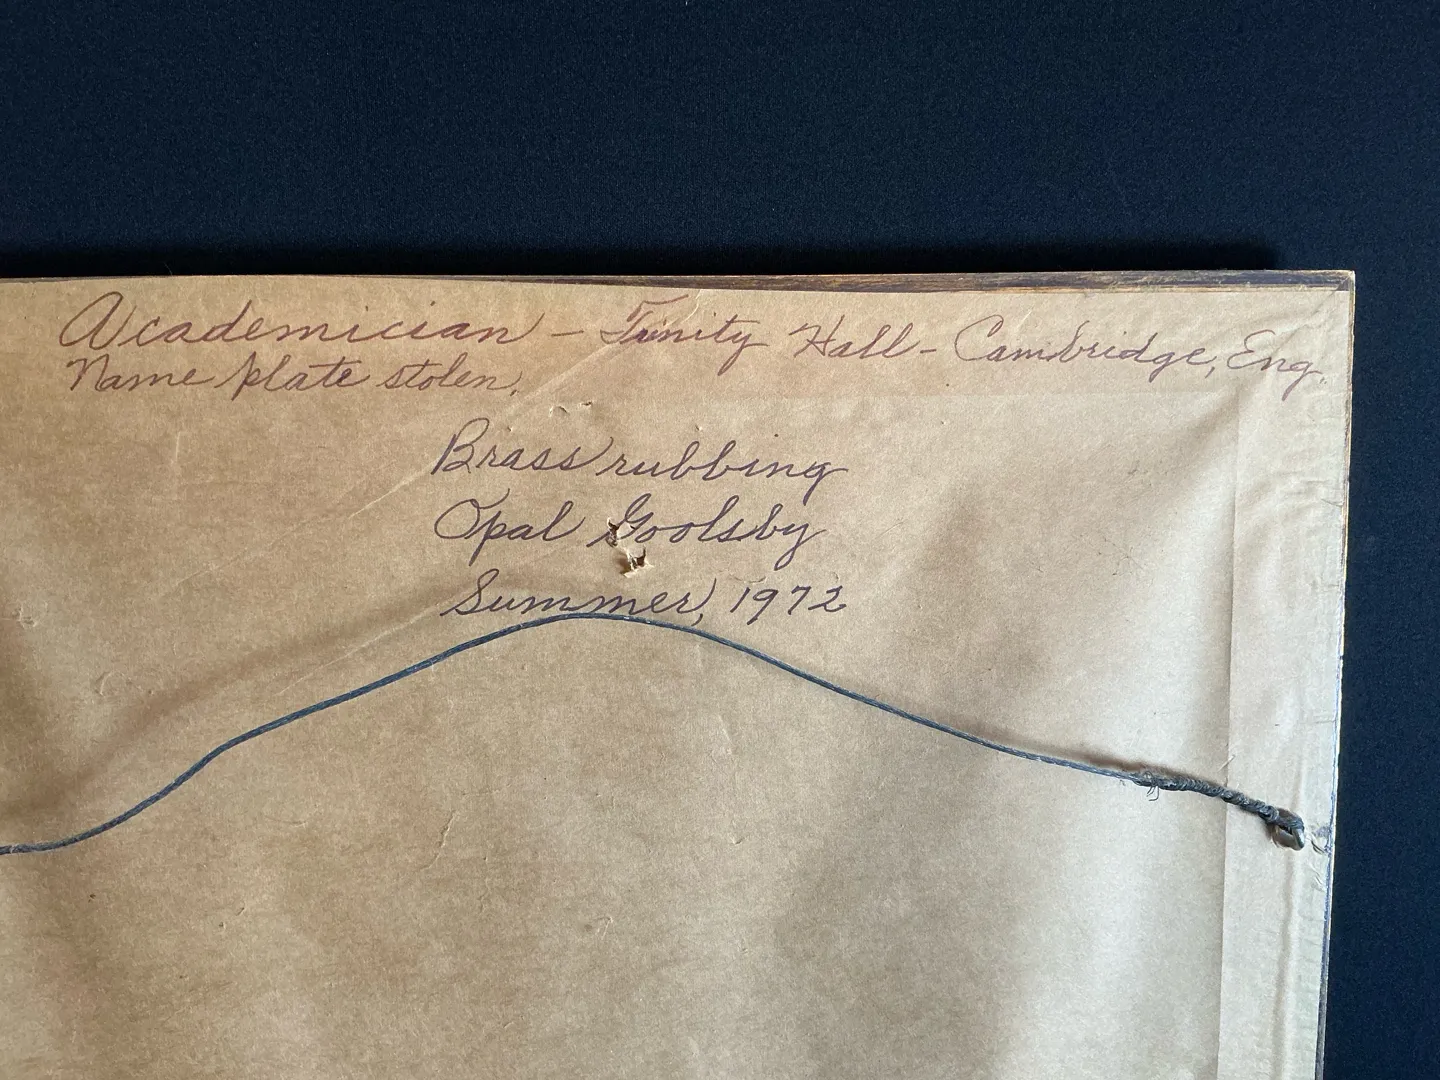 Academician - Trinity Hall - Cambridge, Eng.
Name plate stolen.
Brass rubbing
Opal Goolsby
Summer, 1972